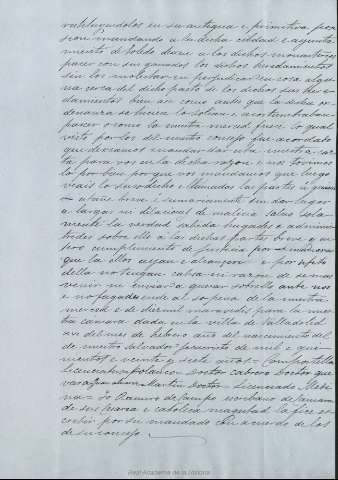 en su antigua e primitiva
sion mandando a la dicha cibdad e ayunta
miento de toledo dexe a los dichos monasterios
pacer con sus ganados los dichos heredamientos
sin los molestar ni perjudicar en cosa algu
na cerca del dicho pasto de los dichos sus here
damientos bien asi como antes que la dicha or
denanza se hiciera lo solian e acostumbraban
pacer o como la nuestra merced fuese lo qual
visto por los del nuestro consejo fue acordado
que deviamos mandar dar esta nuestra car
ta para vos en la dicha razon e nos tovimos
lo por bien por que vos mandamos que luego
veais lo susodicho e llamadas las partes a quien
atañe breve e sumariamente sin dar lugar
a largas ni dilaciones de malicia salvo sola
mente la verdad sabida hagades e adminis
tredes sobre ello a las dichas partes breve e en
tero cumplimiento de justicia por manera
que la ellos ayan e alcancen e por defeto
della no tengan cabsa ni razon de se mas
venir ni enviar a quexar sobrello ante nos
e no fagades ende al so pena de la nuestra
merced e de diez mil maravedis para la nues
tra camara dada en la villa de Valladolid
a del mes de hebrero año del nascimiento del
de nuestro salvador Jesucristo de mil e qui
nientos e veinte y siete años = Compostellanus
Licenciatus Doctor cabrero Doctor que
vara Martin Doctor = Licenciado Medi
na = Yo Ramiro de Campo escribano de camara
de sus cesarea e catolica magestad la fice es
cribir por su mandado con acuerdo de los
de su consejo
Real Academia de la Historia